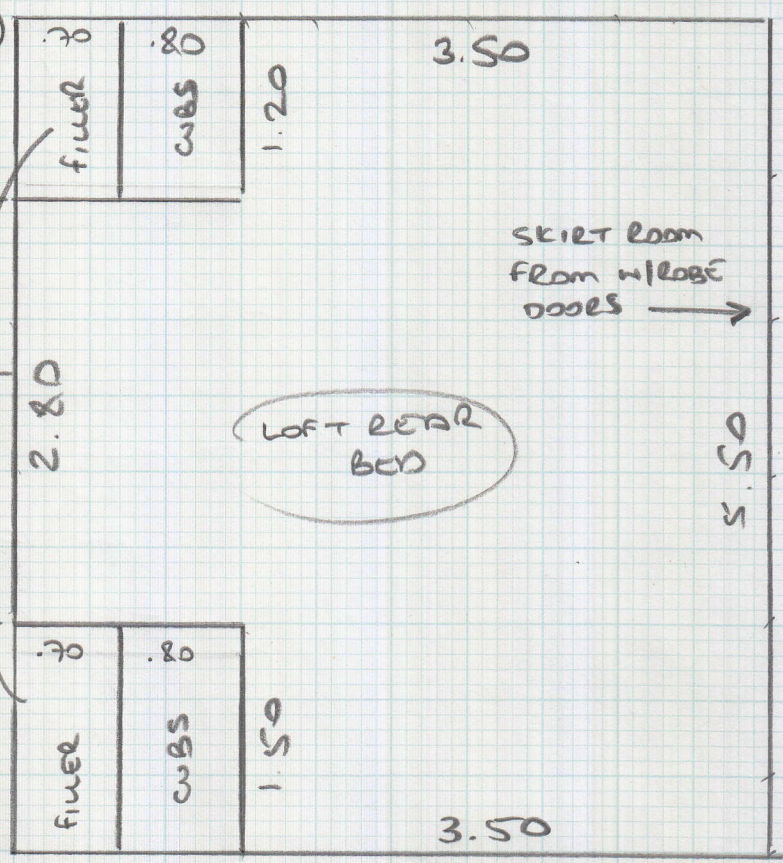 .70
.80
3.50
FILLER
CUBS
1.20
SKIRT ROOM
FROM W/ROBE
DOORS
2.80
LOFT REAR
BED
5.50
.70
.80
FILLER
CUBS
1.50
3.50